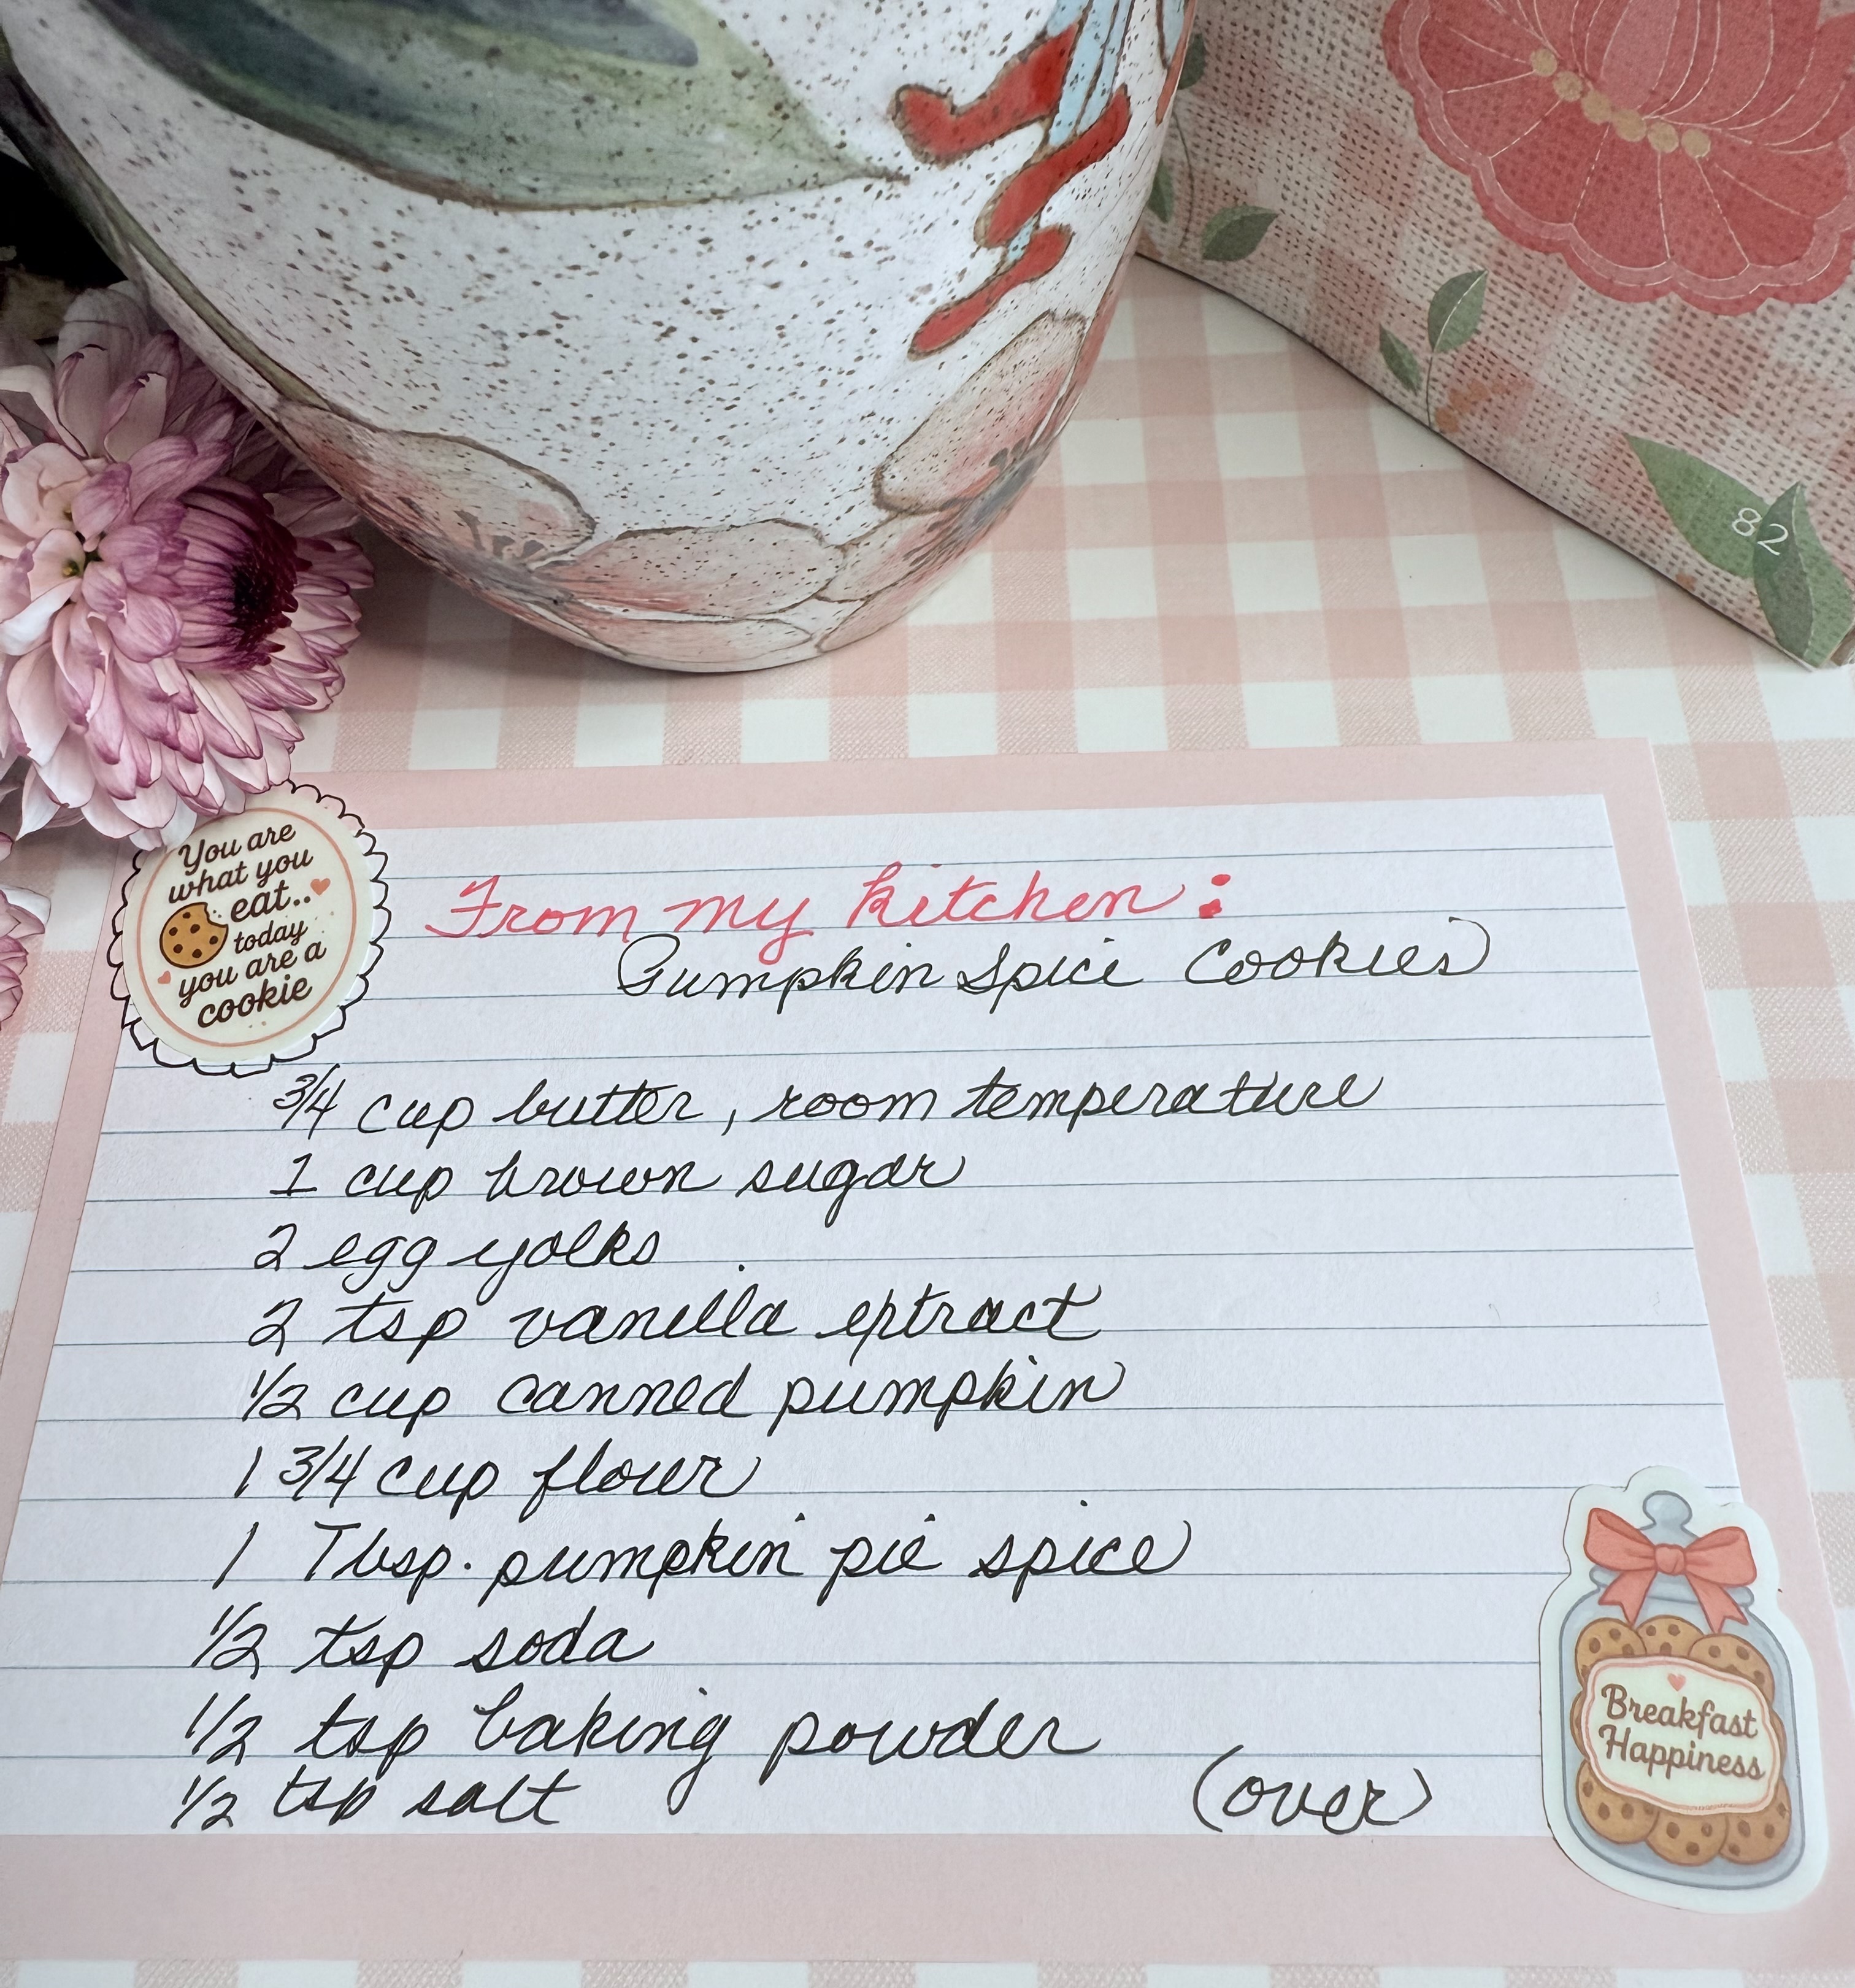 82
You are
what you
eat..
today
you are a
cookie
From my kitchen:
Pumpkin Spice Cookies
3/4 cup butter, room temperature
1 cup brown sugar
2 egg yolks
2 tsp vanilla extract
1/2 cup canned pumpkin
1 3/4 cup flour
1 Tbsp. pumpkin pie spice
1/2 tsp soda
1/2 tsp baking powder
1/2 tsp salt (over)
Breakfast
Happiness